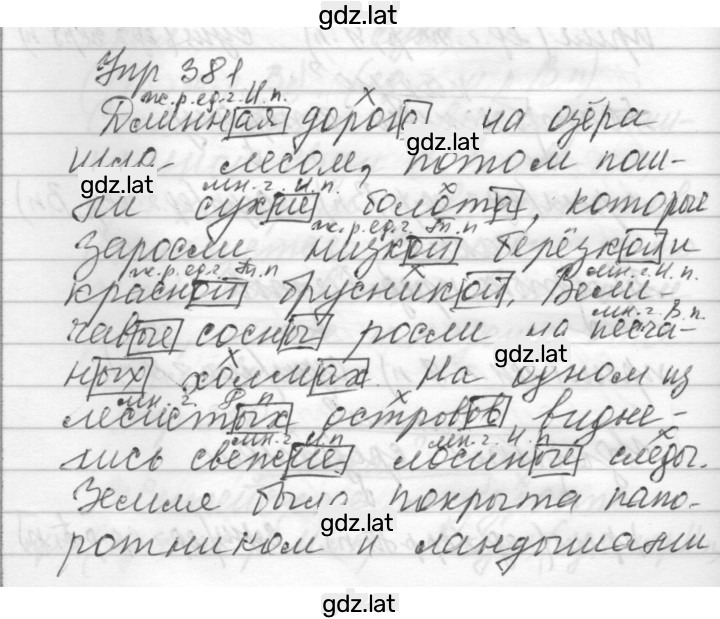 gdz.lat
Упр 381
ж.р.ед.ч. И.п. х
Длинная дорога на озёра
gdz.lat
шла лесом, потом пош-
gdz.lat
мн.ч. И.п.
ли сухие болота, которые
ж.р.ед.ч. Т.п
заросли низкой берёзкой и
ж.р.ед.ч. Т.п мн.ч. И.п.
красной брусникой. Вели-
мн.ч. В.п.
чавые сосны росли на песча-
gdz.lat
ных холмах. На одном из
мн.ч. Р.п х
лесистых островов видне-
мн.ч. И.п мн.ч. И.п. х
лись свежие лосиные следы.
Земля была покрыта папо-
gdz.lat
ротником и ландышами
gdz.lat